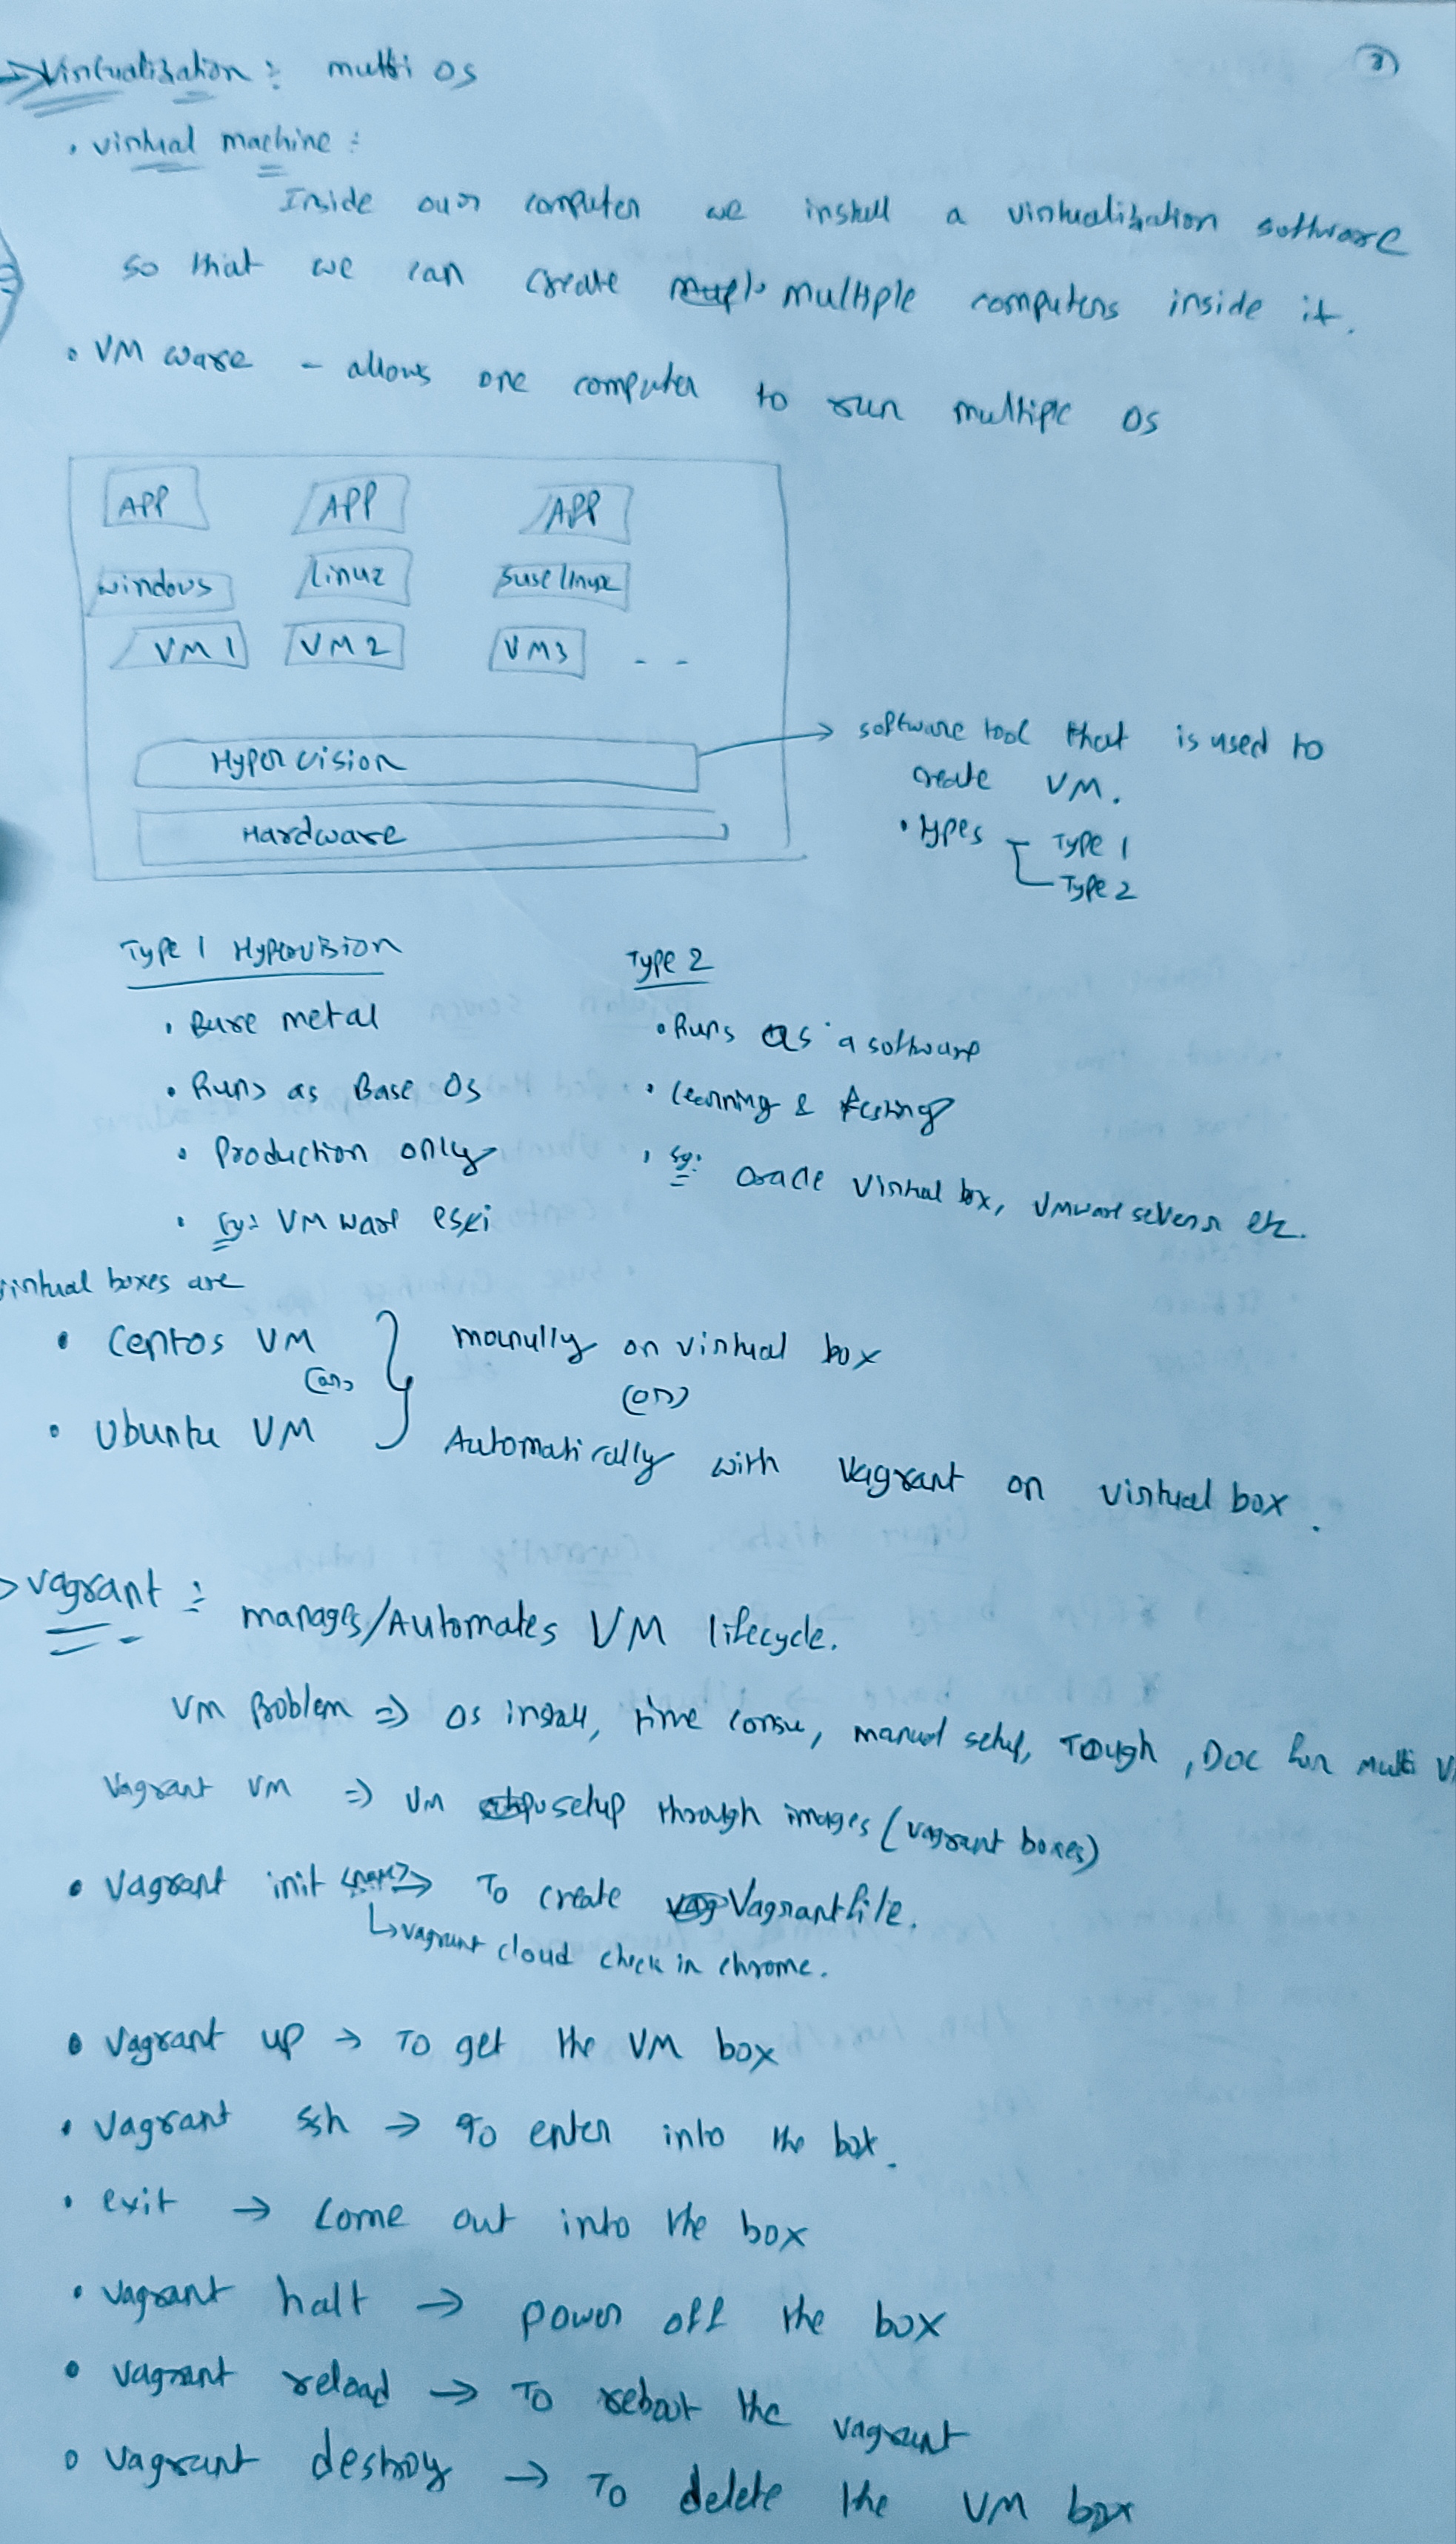 → Virtualization : multi OS
3
• virtual machine :
Inside our computer we install a virtualization software
so that we can create multiple computers inside it.
• VM ware - allows one computer to run multiple OS
APP APP APP
windows Linux suse linux
VM 1 VM 2 VM3 - -
Hyper vision → software tool that is used to
create VM.
Hardware
• types Type 1
Type 2
Type 1 Hypervision
• Bare metal
• Runs as Base OS
• Production only
• Eg: VM ware esxi
Type 2
• Runs as a software
• Learning & testing
• Eg: Oracle Virtual box, Vmware server etc.
virtual boxes are
• Centos VM } manully on virtual box
(or) (or)
• Ubuntu VM Automatically with Vagrant on virtual box.
> vagrant : manages/Automates VM lifecycle.
VM Problem => OS install, time consu, manual setup, Tough, Doc for multi V
Vagrant VM => VM setup through images (vagrant boxes)
• Vagrant init <name> → To create Vagrantfile.
↳ vagrant cloud check in chrome.
• Vagrant up → To get the VM box
• vagrant ssh → To enter into the box.
• exit → come out into the box
• vagrant halt → power off the box
• vagrant reload → To reboot the vagrant
• vagrant destroy → To delete the VM box